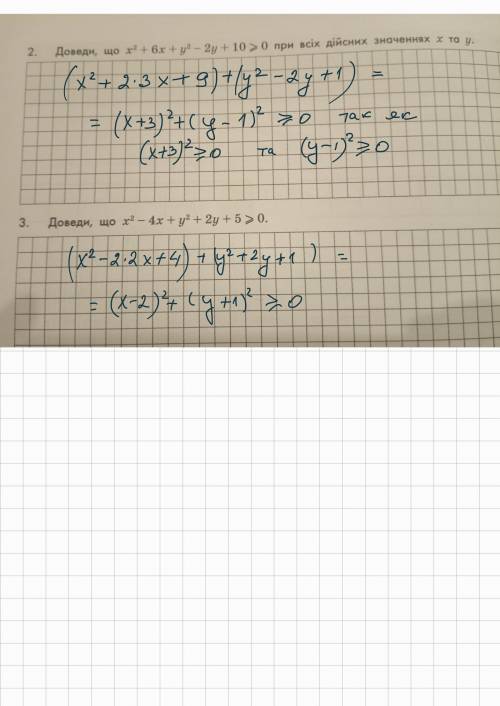 2. Доведи, що x² + 6x + y² − 2y + 10 ⩾ 0 при всіх дійсних значеннях x та y.
(x² + 2·3x + 9) + (y² − 2y + 1) =
= (x+3)² + (y − 1)² ⩾ 0 так як
(x+3)² ⩾ 0 та (y−1)² ⩾ 0
3. Доведи, що x² − 4x + y² + 2y + 5 ⩾ 0.
(x² − 2·2x + 4) + (y² + 2y + 1) =
= (x−2)² + (y+1)² ⩾ 0